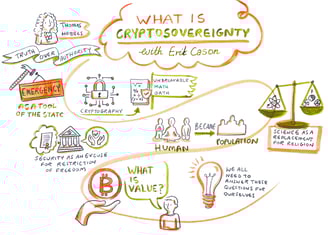 WHAT IS
CRYPTOSOVEREIGNTY
with Erik Cason
THOMAS
HOBBES
TRUTH OVER AUTHORITY
EMERGENCY
AS A TOOL
OF THE STATE
CRYPTOGRAPHY
UNBREAKABLE
MATH
OATH
SECURITY AS AN EXCUSE
FOR RESTRICTION
OF FREEDOM
HUMAN
BECAME
POPULATION
SCIENCE AS A
REPLACEMENT
FOR RELIGION
WHAT
IS
VALUE?
WE ALL
NEED TO
ANSWER THESE
QUESTIONS FOR
OURSELVES